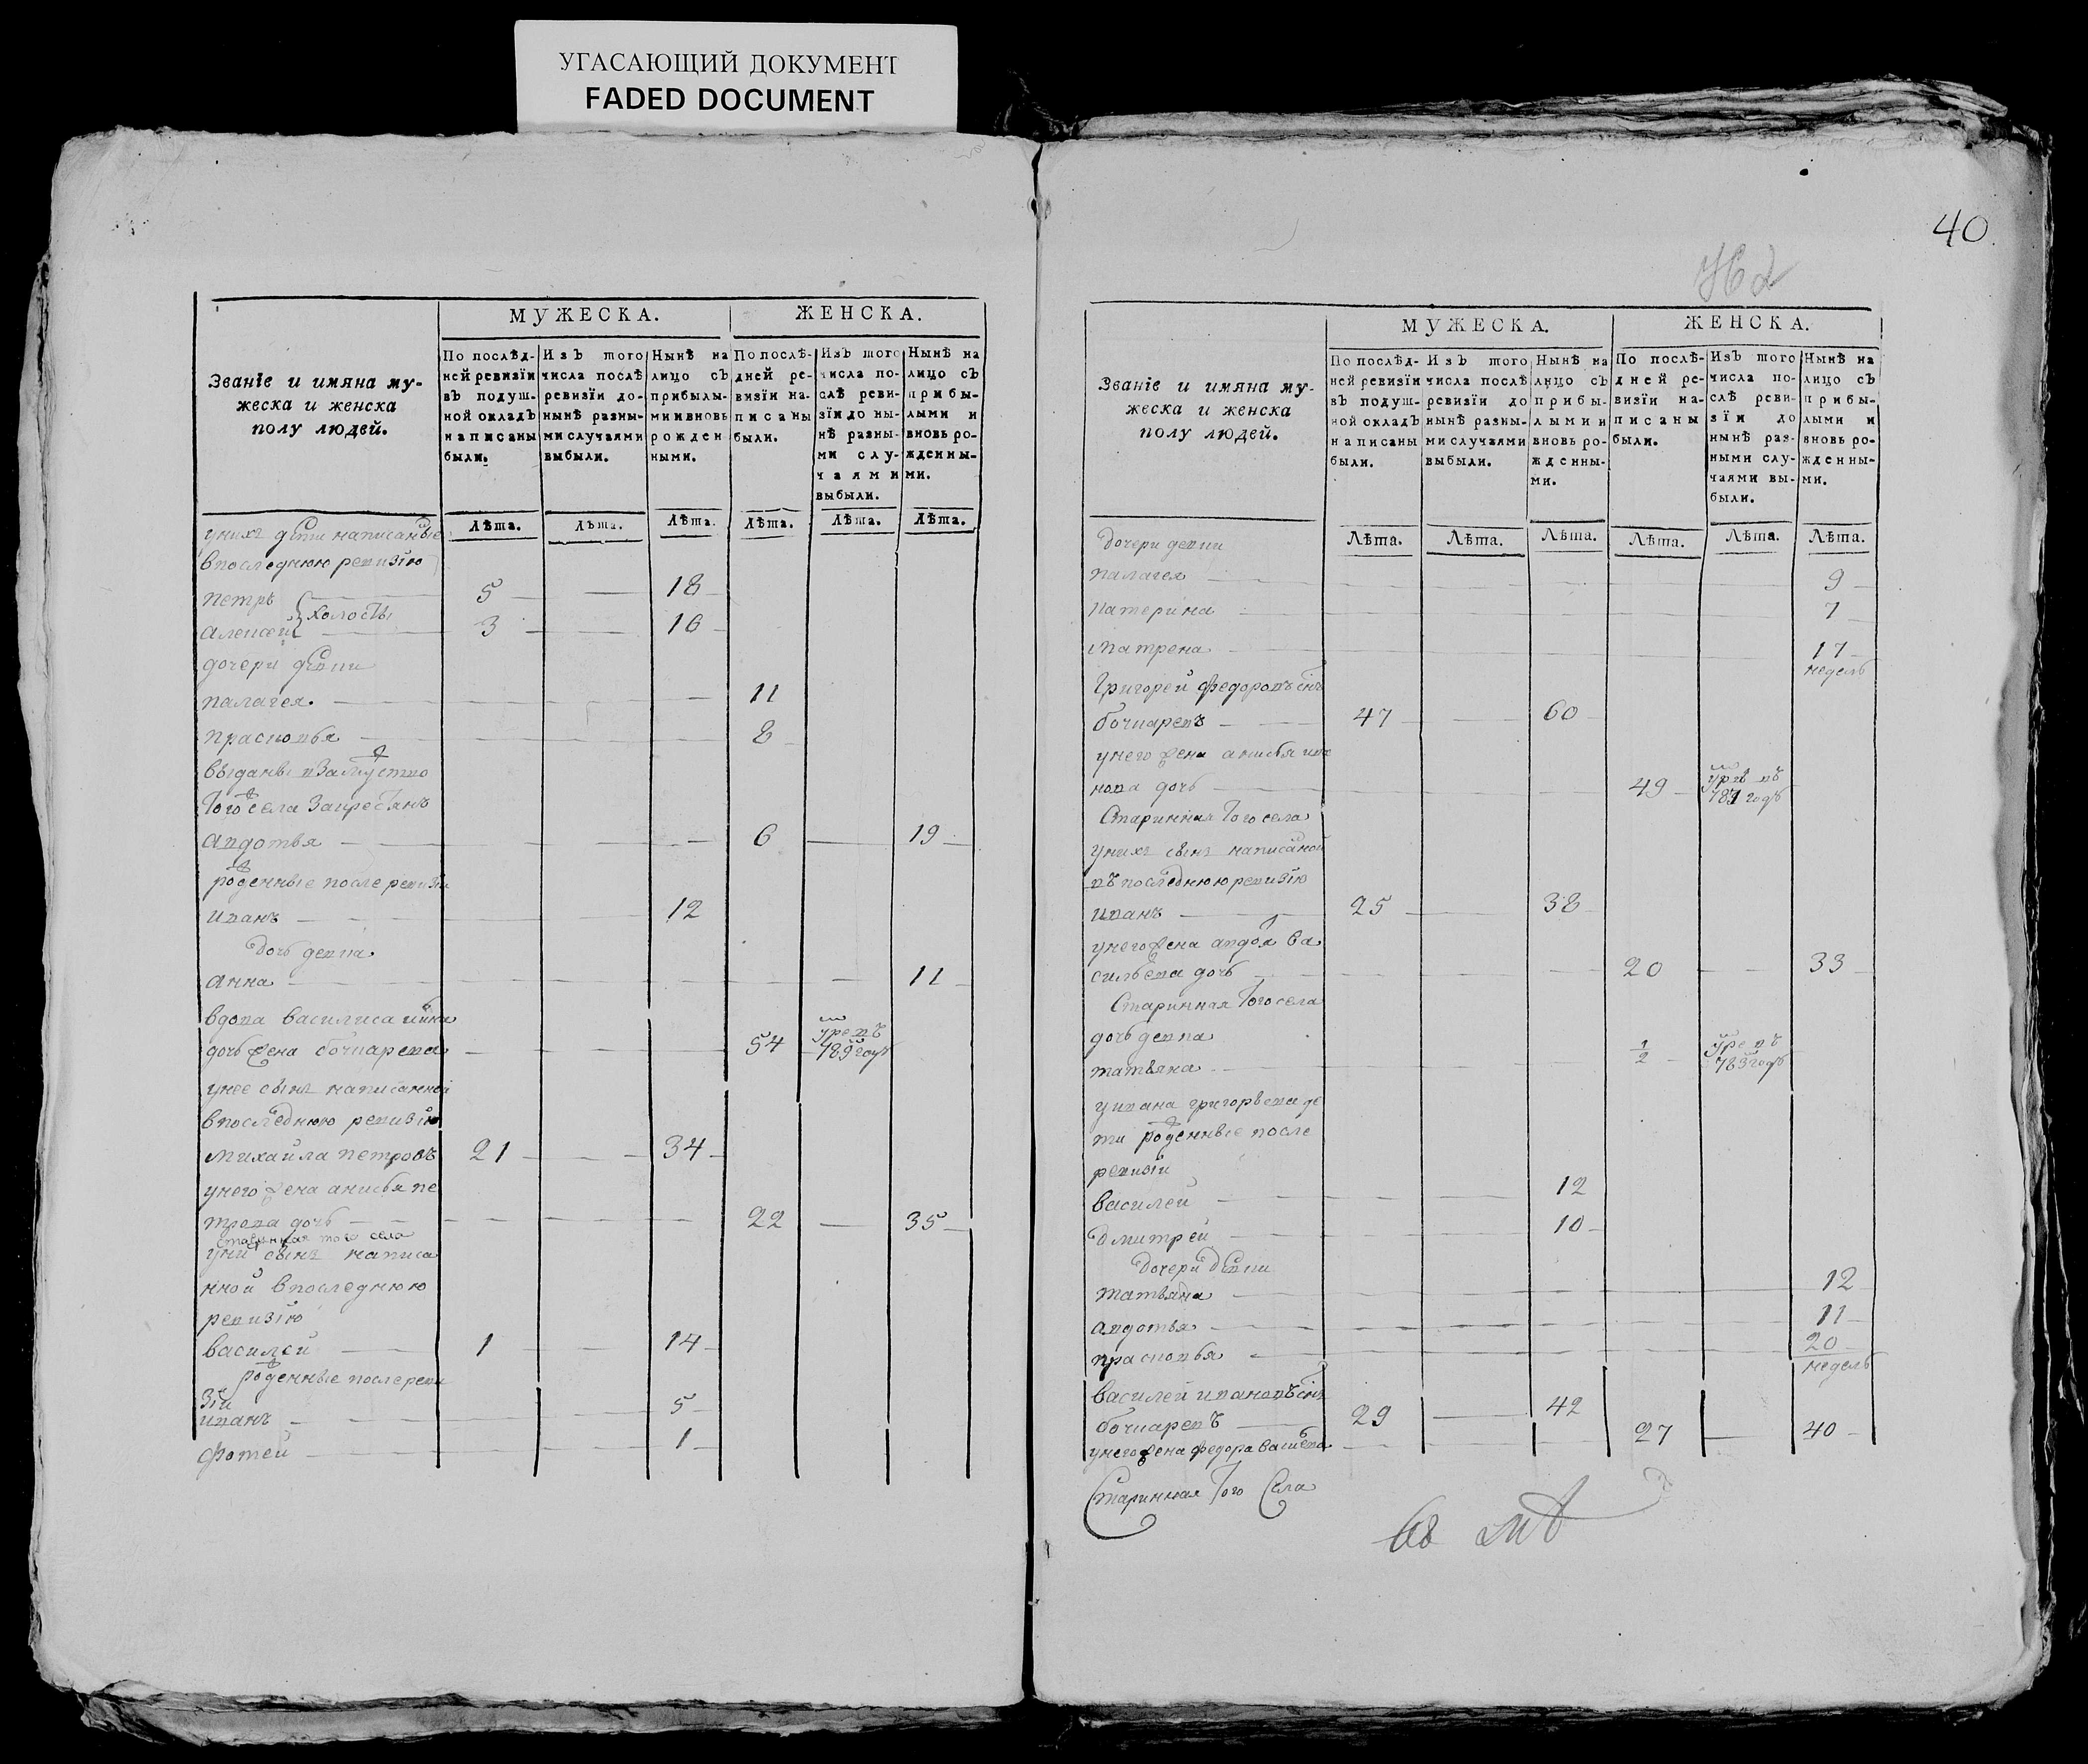 УГАСАЮЩИЙ ДОКУМЕНТ
FADED DOCUMENT
Званіе и имяна му-
жеска и женска
полу людей.
МУЖЕСКА.
ЖЕНСКА.
По послѣд-
ней ревизіи
въ подуш-
ной окладъ
написаны
были.
Изъ того
числа послѣ
ревизіи до-
нынѣ разны-
ми случаями
выбыли.
Нынѣ на
лицо съ
прибылы-
ми и вновь
рожден
ными.
По послѣ-
дней ре-
визіи на-
писаны
были.
Изъ того
числа по-
слѣ реви-
зіи до ны-
нѣ разны-
ми слу-
чаями
выбыли.
Нынѣ на
лицо съ
прибы-
лыми и
вновь ро-
жденны-
ми.
Лѣта. Лѣта. Лѣта. Лѣта. Лѣта. Лѣта.
уних дети написаные
впоследнюю ревизїю
петръ 5 18
холосты
алексей 3 16
дочери девки
палагея 11
прасковья 8
выданы взамужство
того села за крестьянъ
авдотья 6 19
рожденные после ревизїи
иванъ 12
дочь девка
анна 11
вдова василиса
дочь жена бочкарева 54 умре въ 789 году
унее сынъ написанной
впоследнюю ревизїю
михайла петровъ 21 34
унего жена анисья пе
трова дочь 22 35
старинная того села
уних сынъ написа
нной впоследнюю
ревизїю
василей 1 14
рожденные после реви
зїи
иванъ 5
фотей 1
40
Званіе и имяна му-
жеска и женска
полу людей.
МУЖЕСКА.
ЖЕНСКА.
По послѣд-
ней ревизіи
въ подуш-
ной окладъ
написаны
были.
Изъ того
числа послѣ
ревизіи до
нынѣ разны-
ми случаями
выбыли.
Нынѣ на
лицо съ
прибы-
лыми и
вновь ро-
жденны-
ми.
По послѣ-
дней ре-
визіи на-
писаны
были.
Изъ того
числа по-
слѣ реви-
зіи до
нынѣ раз-
ными слу-
чаями вы-
были.
Нынѣ на
лицо съ
прибы-
лыми и
вновь ро-
жденны-
ми.
Лѣта. Лѣта. Лѣта. Лѣта. Лѣта. Лѣта.
дочери девки
палагея 9
катерина 7
матрена 17 недель
Григорей федоровъ снъ
бочкаревъ 47 60
унего жена анисья ива
нова дочь 49 умре въ 787 годъ
Старинная того села
уних сынъ написаной
въ последнюю ревизїю
иванъ 25 38
унего жена авдотья ва
сильева дочь 20 33
Старинная того села
дочь девка
татьяна 1/2 умре въ 783 годъ
у ивана григорьева де
ти рожденные после
ревизїи
василей 12
дмитрей 10
дочери девки
татьяна 12
авдотья 11
прасковья 20 недель
василей ивановъ снъ
бочкаревъ 29 42
унего жена федора васильева 27 40
Старинная того Села